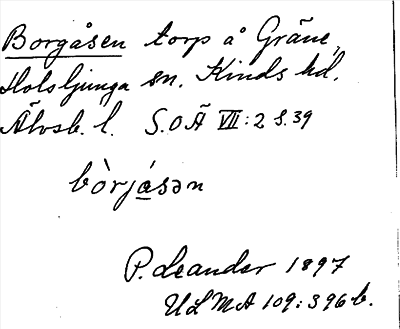 Borgåsen torp å Gräne,
Holsljunga sn. Kinds hd.
Älvsb. l. S.O.Ä VII:2 s.39
bòrjásən
P. Leander 1897
ULMA 109:396 b.